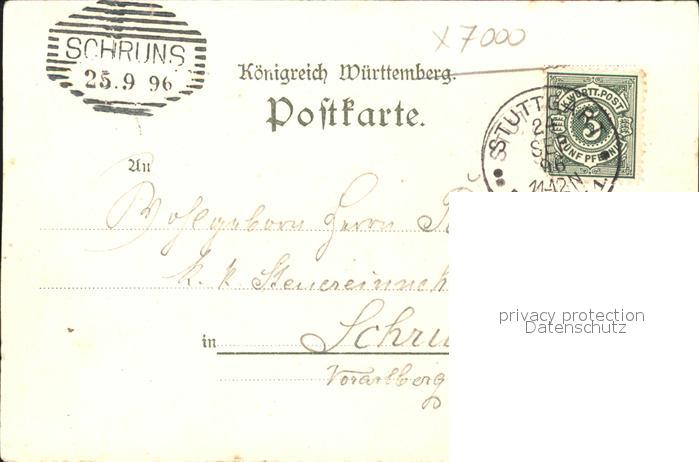 SCHRUNS
25.9 96
x 7000
Königreich Württemberg.
Postkarte.
K. WÜRTT. POST
5
FÜNF PFENNIG
STUTTG
11-12
An
Wohlgeborn Herrn
k. k. Steuereinneh
in Schru
Vorarlberg
privacy protection
Datenschutz